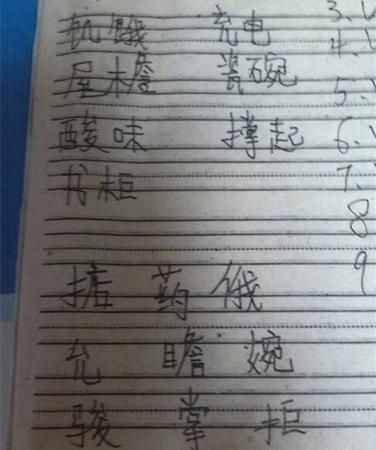 饥饿 充电 3.
屋檐 瓷碗 4.
酸味 撑起 5.
书柜 6.
7.
8
9
掂 药 俄
允 瞻 婉
骏 掌 拒